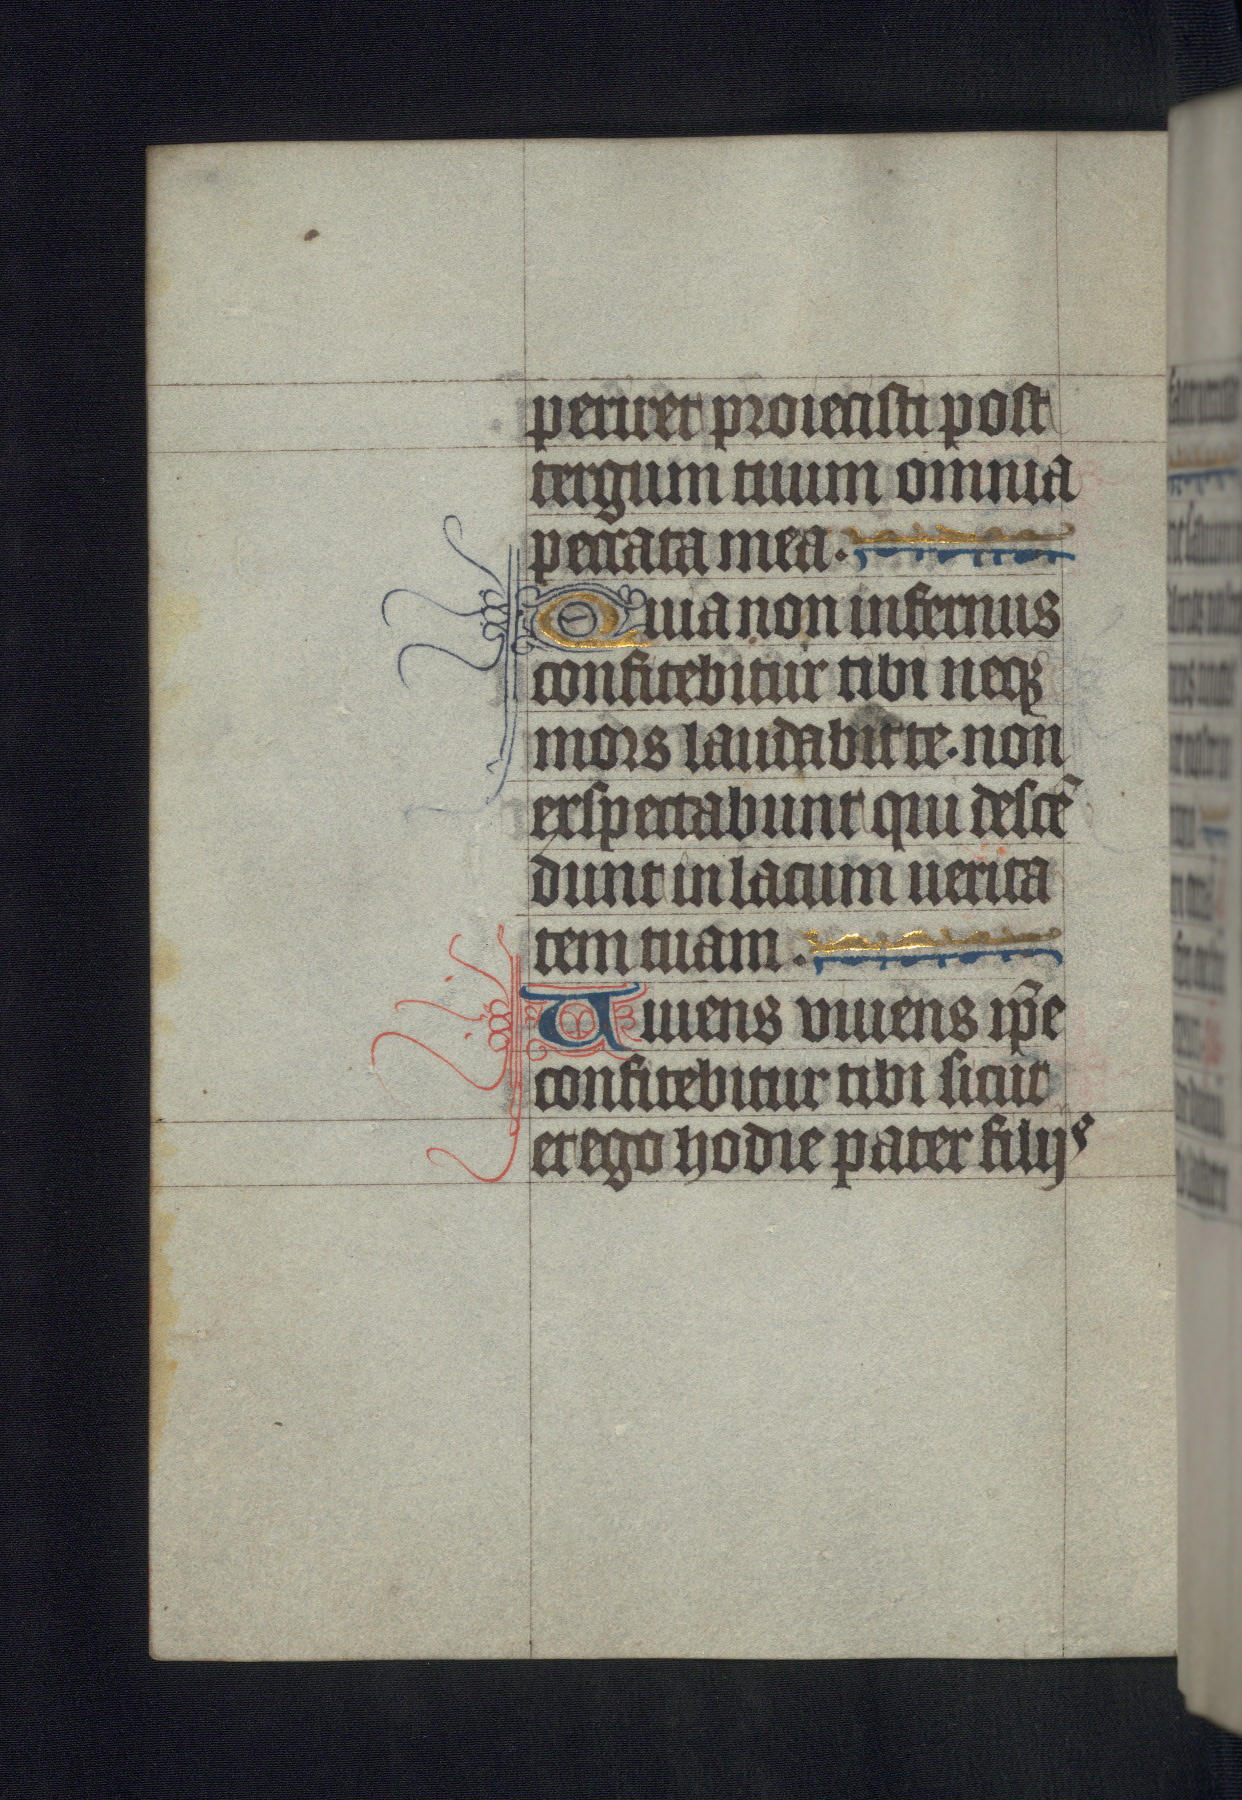 periret proiecisti post
tergum tuum omnia
peccata mea.
Quia non infernus
confitebitur tibi neqꝫ
mors laudabit te. non
exspectabunt qui descē
dunt in lacum uerita
tem tuam.
Uiuens viuens ip̄e
confitebitur tibi sicut
et ego hodie pater filijs